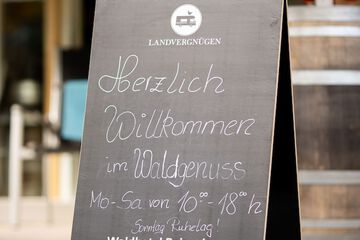 LANDVERGNÜGEN
Herzlich
Willkommen
im Waldgenuss
Mo-Sa von 10⁰⁰-18⁰⁰h
Sonntag Ruhetag!